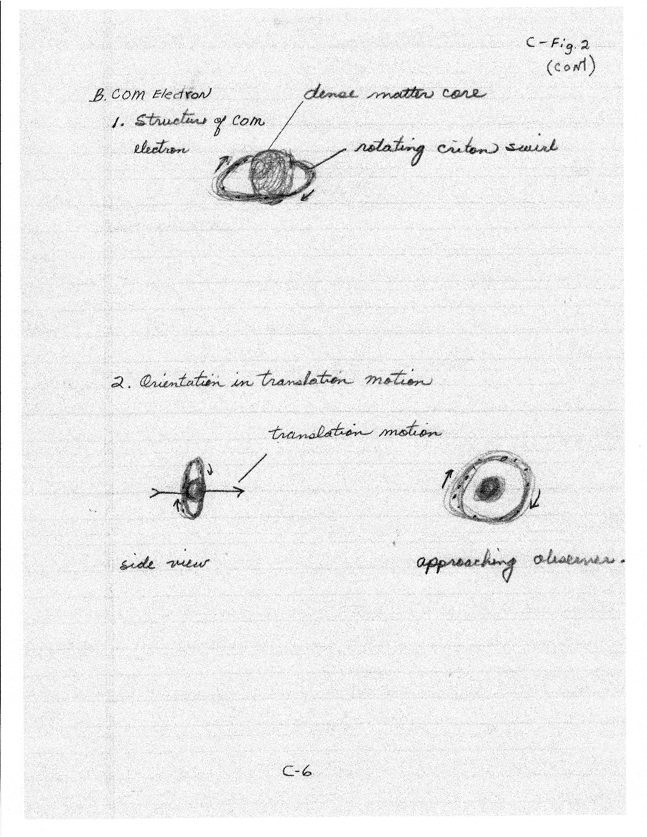 C-Fig. 2
(CONT)
B. COM Electron
dense matter core
1. Structure of COM
electron
rotating criton swirl
2. Orientation in translation motion
translation motion
side view
approaching observer.
C-6